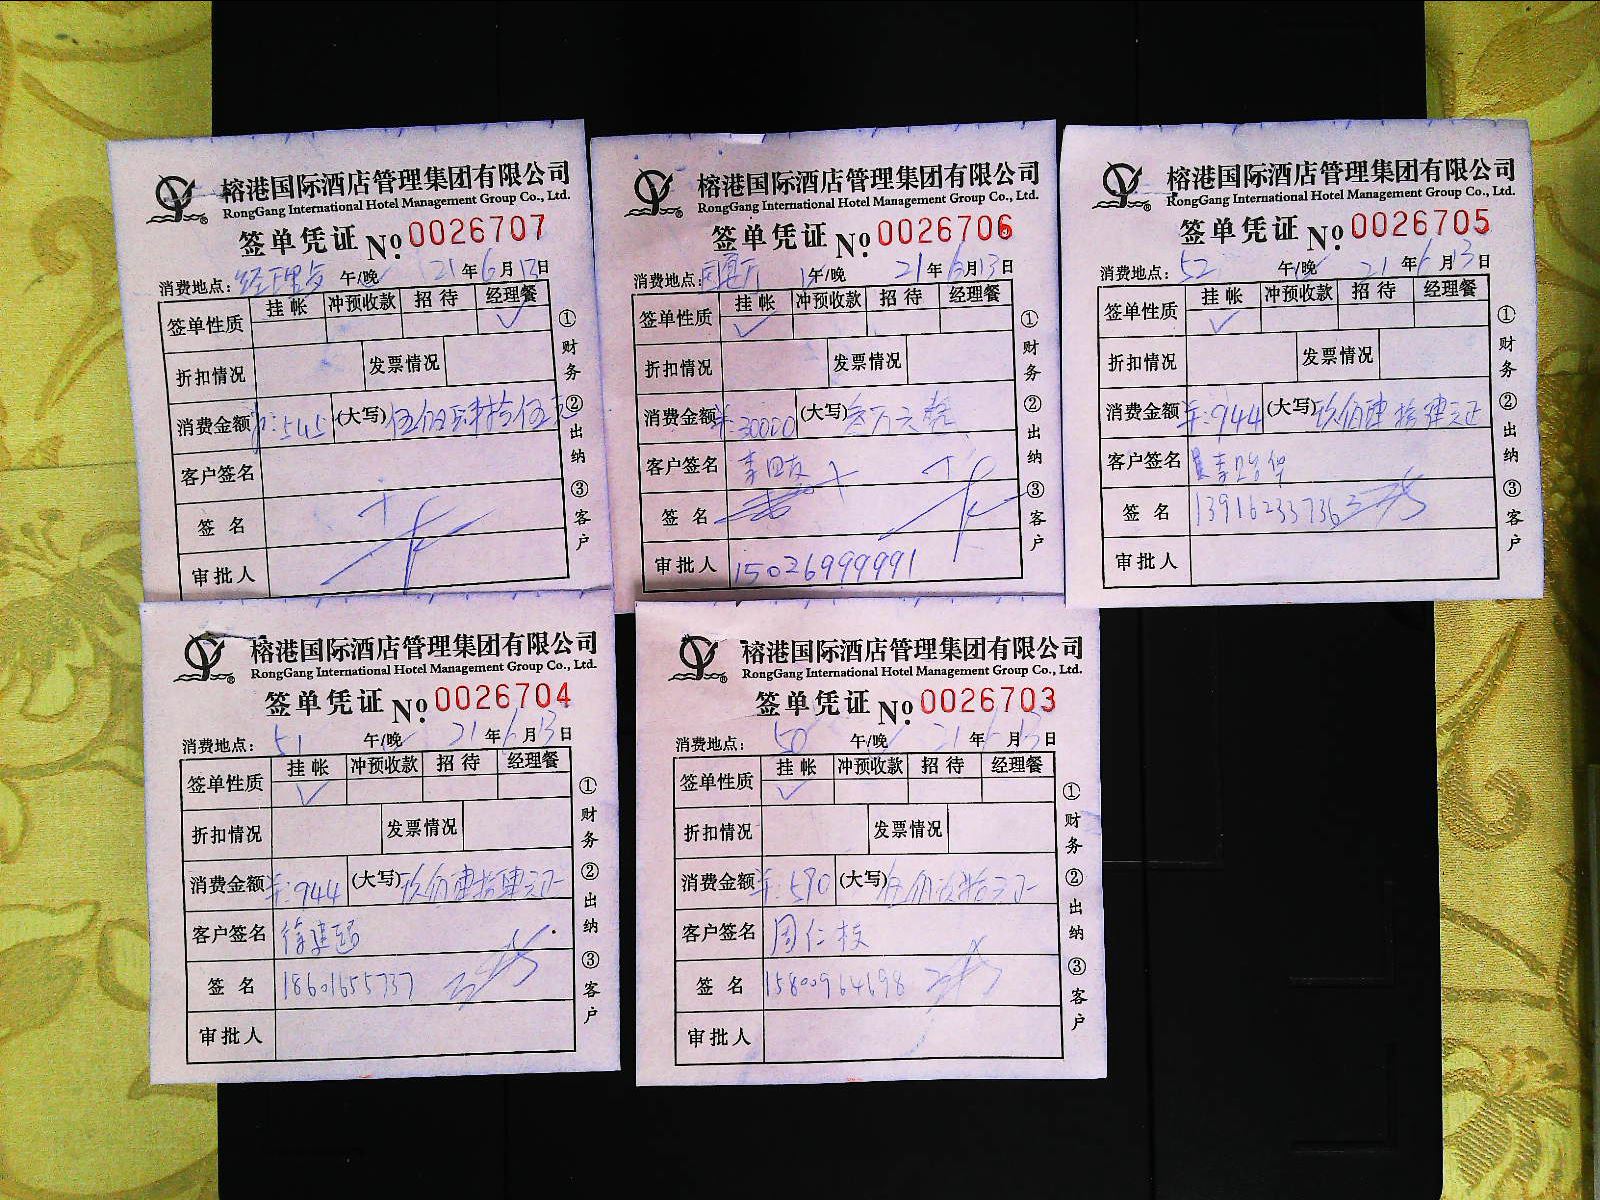 榕港国际酒店管理集团有限公司
RongGang International Hotel Management Group Co., Ltd.
签单凭证 No. 0026707
消费地点: 经理 午/晚 21年6月13日
签单性质 挂帐 冲预收款 招待 经理餐 ✓
折扣情况 发票情况
消费金额 ¥:545 (大写) 伍佰肆拾伍元
客户签名
签名
审批人
①财务 ②出纳 ③客户
榕港国际酒店管理集团有限公司
RongGang International Hotel Management Group Co., Ltd.
签单凭证 No. 0026706
消费地点: 午/晚 21年6月13日
签单性质 挂帐 ✓ 冲预收款 招待 经理餐
折扣情况 发票情况
消费金额 ¥:30000 (大写) 叁万元整
客户签名 李
签名
审批人 15026999991
①财务 ②出纳 ③客户
榕港国际酒店管理集团有限公司
RongGang International Hotel Management Group Co., Ltd.
签单凭证 No. 0026705
消费地点: 52 午/晚 21年6月13日
签单性质 挂帐 ✓ 冲预收款 招待 经理餐
折扣情况 发票情况
消费金额 ¥:944 (大写) 玖佰肆拾肆元正
客户签名 李
签名 13916233736
审批人
①财务 ②出纳 ③客户
榕港国际酒店管理集团有限公司
RongGang International Hotel Management Group Co., Ltd.
签单凭证 No. 0026704
消费地点: 51 午/晚 21年6月13日
签单性质 挂帐 ✓ 冲预收款 招待 经理餐
折扣情况 发票情况
消费金额 ¥:944 (大写) 玖佰肆拾肆元正
客户签名 徐建
签名 18601655737
审批人
①财务 ②出纳 ③客户
榕港国际酒店管理集团有限公司
RongGang International Hotel Management Group Co., Ltd.
签单凭证 No. 0026703
消费地点: 50 午/晚 21年6月13日
签单性质 挂帐 ✓ 冲预收款 招待 经理餐
折扣情况 发票情况
消费金额 ¥:590 (大写) 伍佰玖拾元正
客户签名 周仁枝
签名 15800964698
审批人
①财务 ②出纳 ③客户